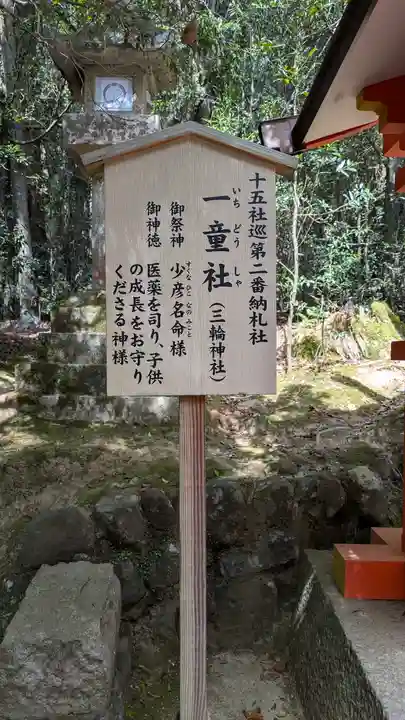 十五社巡第二番納札社
一童社（三輪神社）
いち どう しゃ
御祭神 少彦名命様
すくな ひこ なの みこと
御神徳 医薬を司り、子供
の成長をお守り
くださる神様